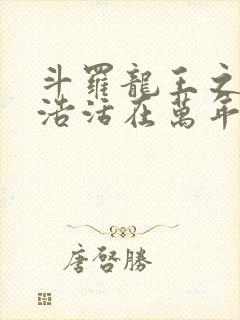 斗羅龍王之
浩活在萬年
唐啓勝